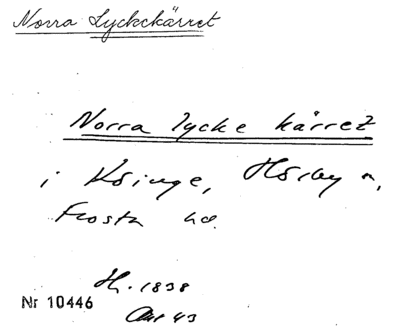 Norra Lyckekärret
Norra lycke kärret
i Köinge, Hörby n,
Frosta hd.
H. 1838
Nr 10446
Akt 43